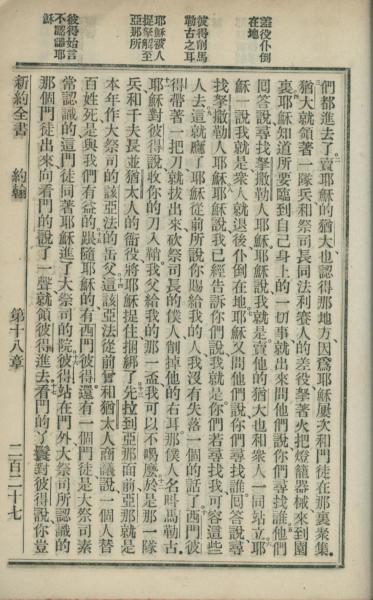 差役仆倒
在地
彼得削馬
勒古之耳
耶穌被人
捉拏解至
亞那所
彼得始言
不認識耶
穌
們都進去了賣耶穌的猶大也認得那地方因爲耶穌屢次和門徒在那裏衆集
猶大就領著一隊兵和祭司長同法利賽人的差役拏著火把燈籠器械來到園
裏耶穌知道所要臨到自己身上的一切事就出來問他們說你們尋找誰他們
回答說尋找拏撒勒人耶穌耶穌說我就是賣他的猶大也和衆人一同站立耶
穌一說我就是衆人就退後仆倒在地耶穌又問他們說你們尋找誰回答說尋
找拏撒勒人耶穌耶穌說我已經告訴你們說我就是你們若尋找我可容這些
人去這就應了耶穌從前所說你賜給我的人我沒有失落一個的話了西門彼
得帶著一把刀就拔出來砍祭司長的僕人削掉他的右耳那僕人名呌馬勒古
耶穌對彼得說收你的刀入鞘我父給我的那一盃我可以不喝麼於是那一隊
兵和千夫長並猶太人的衙役將耶穌捉住捆綁了先拉到亞那面前亞那就是
本年作大祭司的該亞法的岳父這該亞法從前曾和猶太人商議說一個人替
百姓死是與我們有益的跟隨耶穌的有西門彼得還有一個門徒是大祭司素
常認識的這門徒同著耶穌進了大祭司的院彼得站在門外大祭司所認識的
那個門徒出來向看門的說了一聲就領彼得進去看門的丫鬟對彼得說你豈
新約全書 約翰 第十八章 二百二十七